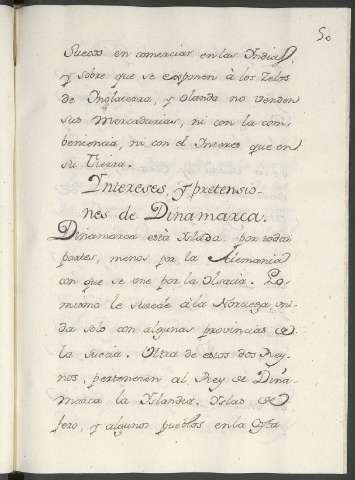 50
Suecos en comerciar en las Indias,
y sobre que se exponen à los Zelos
de Inglaterra, y olanda no venden
sus Mercadurias, ni con la com-
beniencia, ni con el Interes que en
su Tierra.
Yntereses, y pretensio-
nes de Dinamarca.
Dinamarca està Islada por todas
partes, menos por la Alemania
con que se une por la Olsacia. Lo
mismo le sucede à la Noruega uni-
da solo con algunas provincias de
la Suecia. Ultra de estos dos Rey-
nos, pertenecen al Rey de Dina-
marca la Islandia, Islas de
fero, y algunos pueblos en la Costa